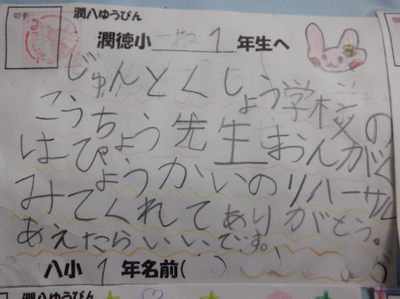 潤八ゆうびん
切手
潤徳小 1 年生へ
じゅんとくしょう学校の
こうちょう先生おんがく
はっぴょうかいのリハーサル
みてくれてありがとう。
あえたらいいです。
八小 1 年名前( )
潤八ゆうびん
切手